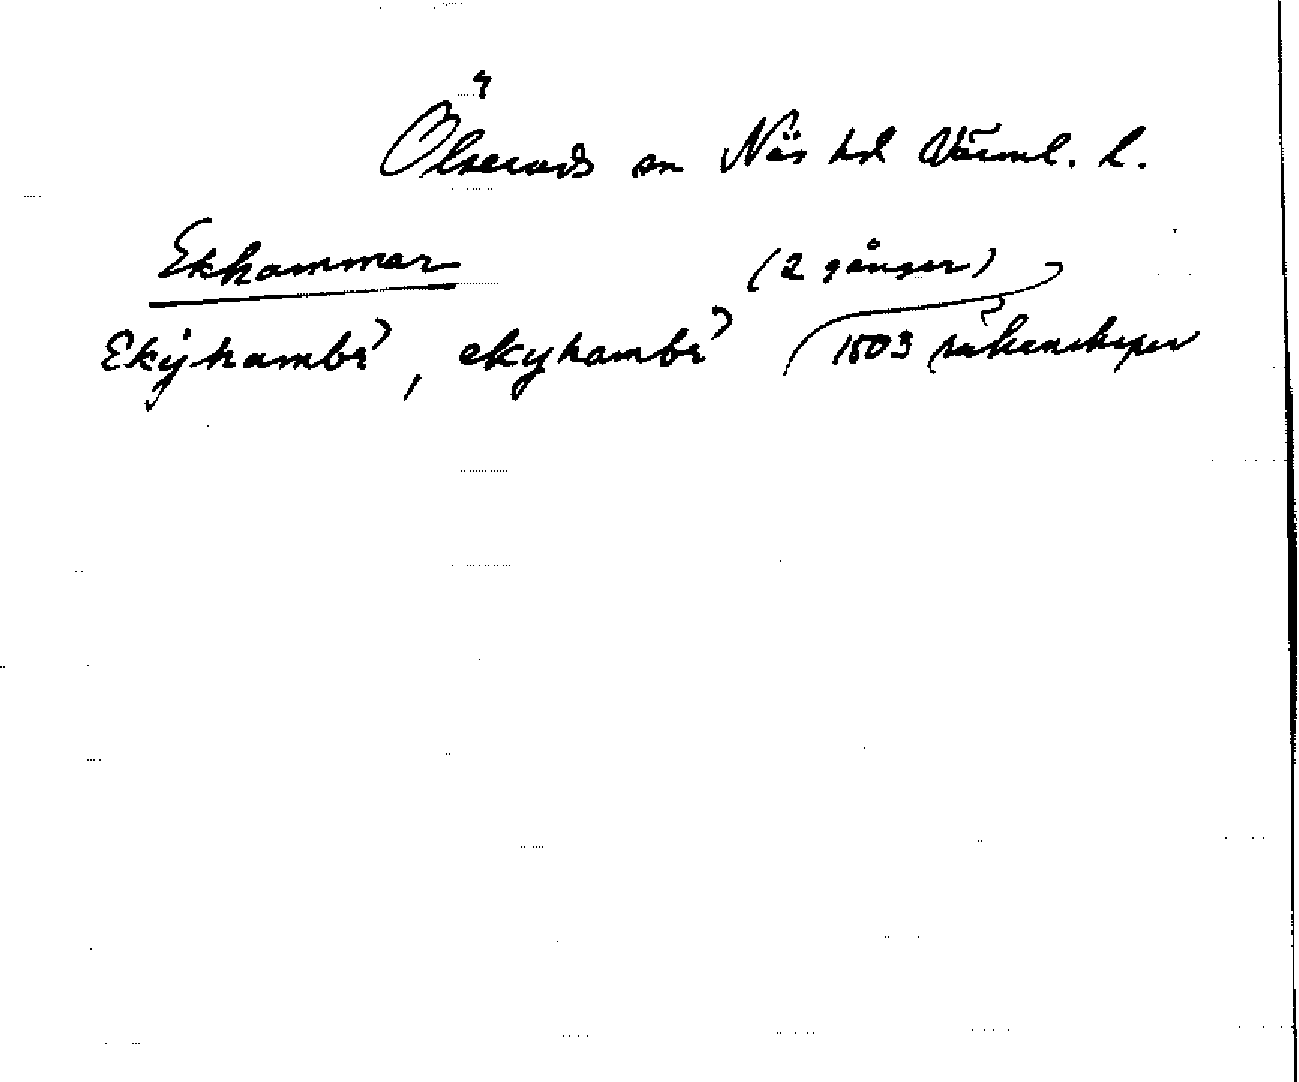 4
Ölserud sn Näs hd Värml. l.
Ekhammar (2 gånger)
Ekÿhamb​r, ekyhambr 1503 räkenskaper